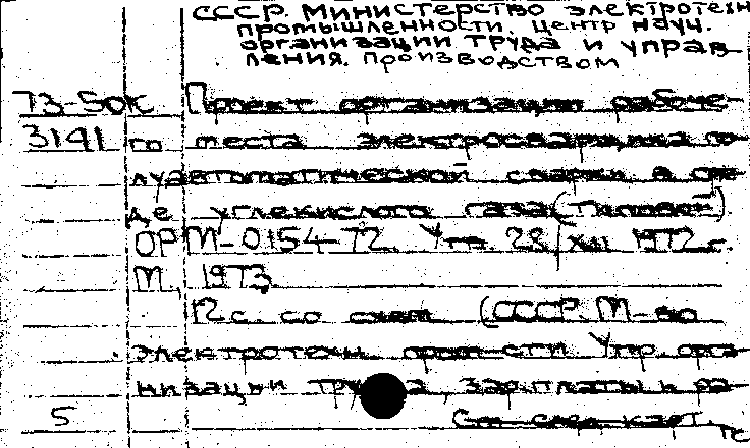 СССР. Министерство электротехн
промышленности. Центр научн.
организации труда и управ-
ления. Производством
73-50к Проект организации рабоче-
3141 го места электросварщика по-
луавтоматической сварки в сре-
де углекислого газа (типовой)
ОРМ-0154-72. Утв. 28/XII 1972 г.
М. 1973
12 с. со схем (СССР. М-во
электротехн. пром-сти Упр. орга-
низации труда, зар. платы и ра-
5 См. след. карт.